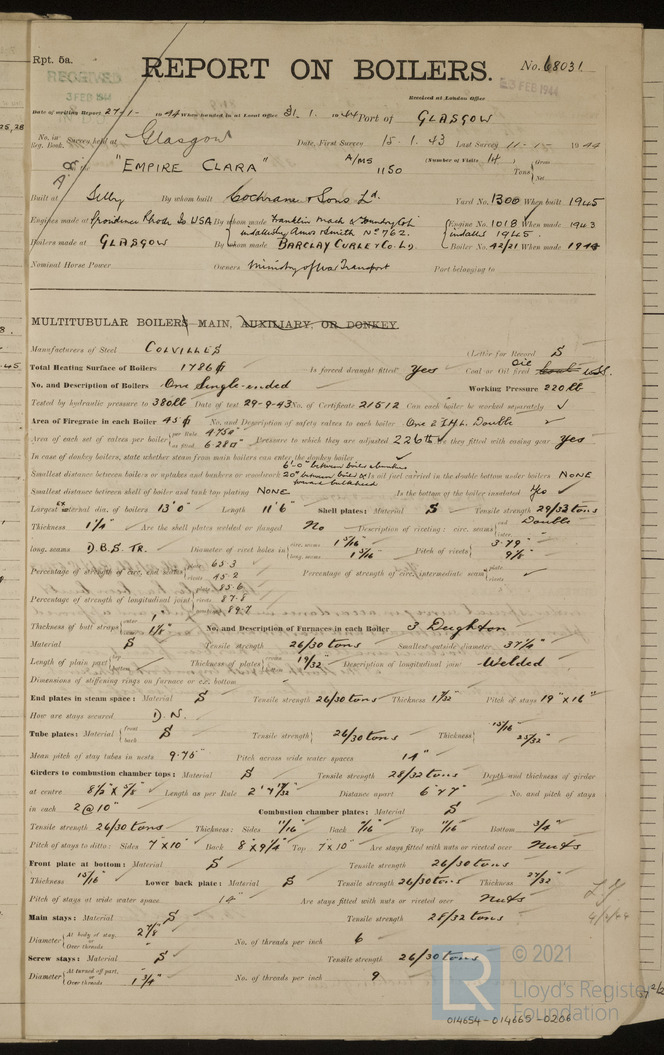 Rpt. 5a.
REPORT ON BOILERS.
No. 68031
RECEIVED
3 FEB 1944
3 FEB 1944
Received at London Office
Date of writing Report 27-1- 1944 When handed in at Local Office 31. 1. 1944 Port of GLASGOW
No. in Reg. Book. Survey held at Glasgow Date, First Survey 15. 1. 43 Last Survey 1944
on the "EMPIRE CLARA" A/MS 1150 (Number of Visits 14) Tons { Gross Net
Built at Selby By whom built Cochrane & Sons Ld. Yard No. 1300 When built 1945
Engines made at Providence Rhode Is USA By whom made Franklin Mach & Foundry Co. Engine No. 1018 When made 1943
installed by Amos Smith No 762. installed 1945.
Boilers made at GLASGOW By whom made BARCLAY CURLE & Co. Ld. Boiler No. 42/21 When made 1944
Nominal Horse Power Owners Ministry of War Transport Port belonging to
MULTITUBULAR BOILERS MAIN, AUXILIARY, OR DONKEY.
Manufacturers of Steel COLVILLES (Letter for Record S
Total Heating Surface of Boilers 1786 Is forced draught fitted Yes Coal or Oil fired Oil
No. and Description of Boilers One Single-ended Working Pressure 220 lb
Tested by hydraulic pressure to 380 lb Date of test 29-9-43 No. of Certificate 21512 Can each boiler be worked separately ✓
Area of Firegrate in each Boiler 45 No. and Description of safety valves to each boiler Double
Area of each set of valves per boiler { per Rule 4.750" as fitted 6.280" Pressure to which they are adjusted 226 lb Are they fitted with easing gear Yes
In case of donkey boilers, state whether steam from main boilers can enter the donkey boiler
Smallest distance between boilers or uptakes and bunkers or woodwork 20" between boiler & forward bulkhead Is oil fuel carried in the double bottom under boilers NONE
Smallest distance between shell of boiler and tank top plating NONE Is the bottom of the boiler insulated Yes
Largest external dia. of boilers 13'0" Length 11'6" Shell plates: Material S Tensile strength 29/33 tons
Thickness 1 1/4" Are the shell plates welded or flanged No Description of riveting: circ. seams { end Double inter.
long. seams D.B.S. TR. Diameter of rivet holes in { circ. seams 1 5/16" long. seams 1 5/16" Pitch of rivets { 3.79" 9 1/8"
Percentage of strength of circ. end seams { plate 65.3 rivets 45.2 Percentage of strength of circ. intermediate seam { plate rivets
Percentage of strength of longitudinal joint { plate 85.6 rivets 87.8 combined 89.7
Thickness of butt straps { outer 1" inner 1 1/8" No. and Description of Furnaces in each Boiler 3 Deighton
Material S Tensile strength 26/30 tons Smallest outside diameter 37 1/4"
Length of plain part { top bottom Thickness of plates { 19/32" Description of longitudinal joint Welded
Dimensions of stiffening rings on furnace or c.c. bottom
End plates in steam space: Material S Tensile strength 26/30 tons Thickness 1 1/32" Pitch of stays 19" x 16"
How are stays secured D.N.
Tube plates: Material { front back S Tensile strength { 26/30 tons Thickness { 15/16" 25/32"
Mean pitch of stay tubes in nests 9.75" Pitch across wide water spaces 14"
Girders to combustion chamber tops: Material S Tensile strength 28/32 tons Depth and thickness of girder
at centre Length as per Rule Distance apart No. and pitch of stays
in each 2 @ 10" Combustion chamber plates: Material S
Tensile strength 26/30 tons Thickness: Sides 11/16" Back 11/16" Top 11/16" Bottom 3/4"
Pitch of stays to ditto: Sides 7 x 10" Back 8" x 9 1/4" Top 7 x 10" Are stays fitted with nuts or riveted over Nuts
Front plate at bottom: Material S Tensile strength 26/30 tons
Thickness 15/16" Lower back plate: Material S Tensile strength 26/30 tons Thickness 27/32"
Pitch of stays at wide water space 14" Are stays fitted with nuts or riveted over Nuts
Main stays: Material S Tensile strength 28/32 tons
Diameter { At body of stay, or Over threads 2 7/8" No. of threads per inch 6
Screw stays: Material S Tensile strength 26/30 tons
Diameter { At turned off part, or Over threads 1 3/4" No. of threads per inch 9
LR © 2021
Lloyd's Register
Foundation
014654-014665-0206